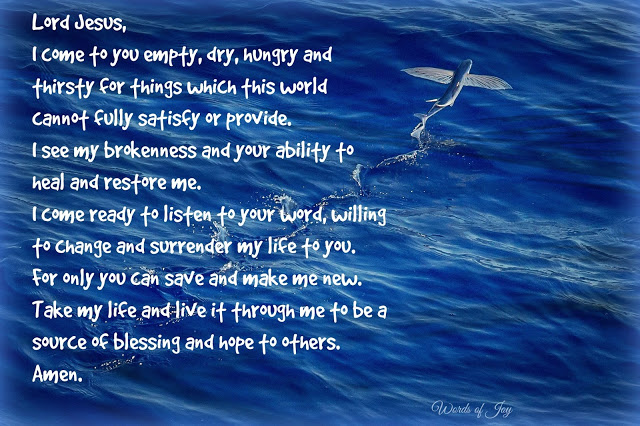 Lord Jesus,
I come to you empty, dry, hungry and
thirsty for things which this world
cannot fully satisfy or provide.
I see my brokenness and your ability to
heal and restore me.
I come ready to listen to your word, willing
to change and surrender my life to you.
For only you can save and make me new.
Take my life and live it through me to be a
source of blessing and hope to others.
Amen.
Words of Joy